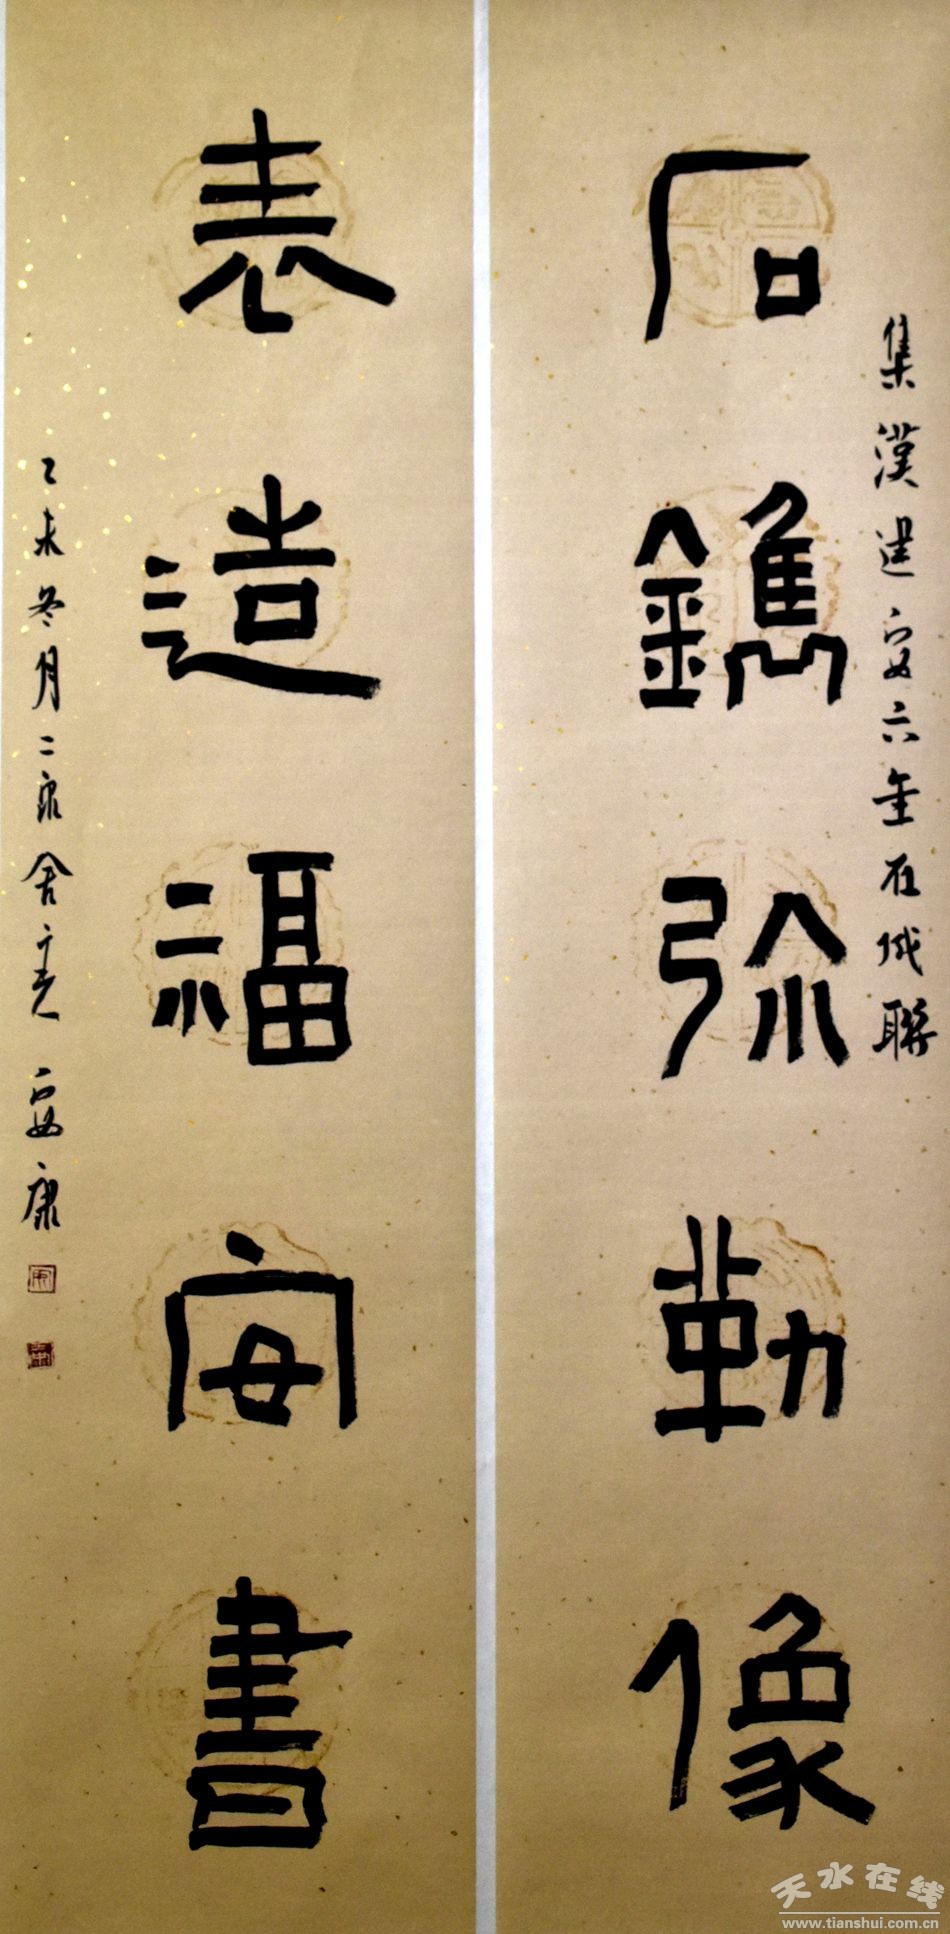 集漢建安六金石成聯
石鐫弥勒像
表造福安書
乙未冬月二泉舍安康
天水在线
www.tianshui.com.cn